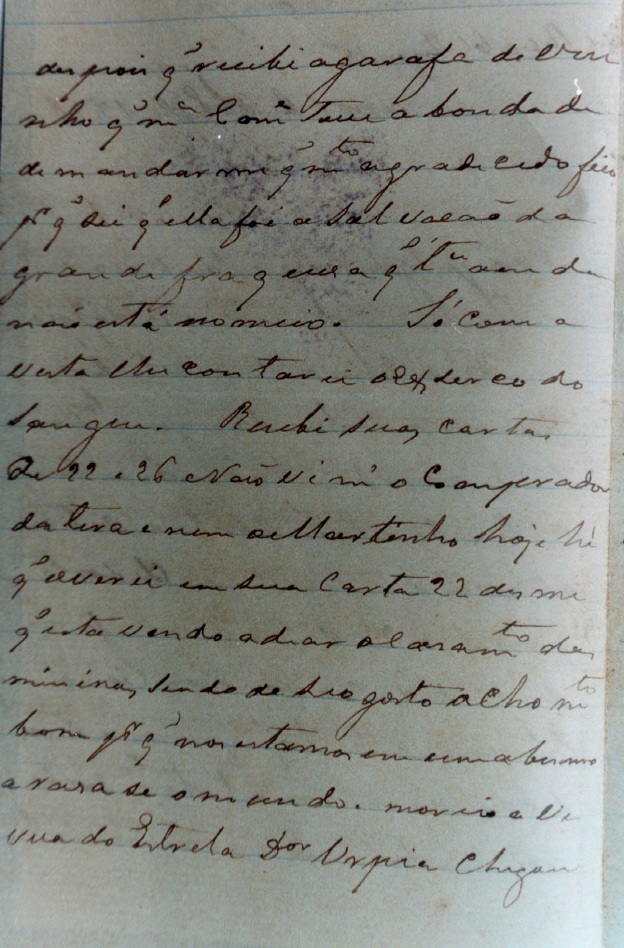 despois q̃ recibi agarafa de Vin
nho q̃ mª Comª teve a bondade
de mandarme q̃ mto agradecido fico
pr q̃ sei q̃ ella foi a Salvacaõ da
grande fraqueza q̃ ainda
naõ está no meio. Só com a
vista lhe contarei do
Sangue. Recibi suas cartas
de 22 e 26 Naõ vi mª o Comprador
da tera e nem o Martinho hoje hé
q̃ overei em sua Carta 22 des me
q̃ esta vendo adiar o Casamto das
mininas, sendo de seo gosto acho mto
bom pr q̃ nos estamos em um abismo
arasa se o mundo. moreio a Vi
uva do Estrela Dor Urpia Chegou